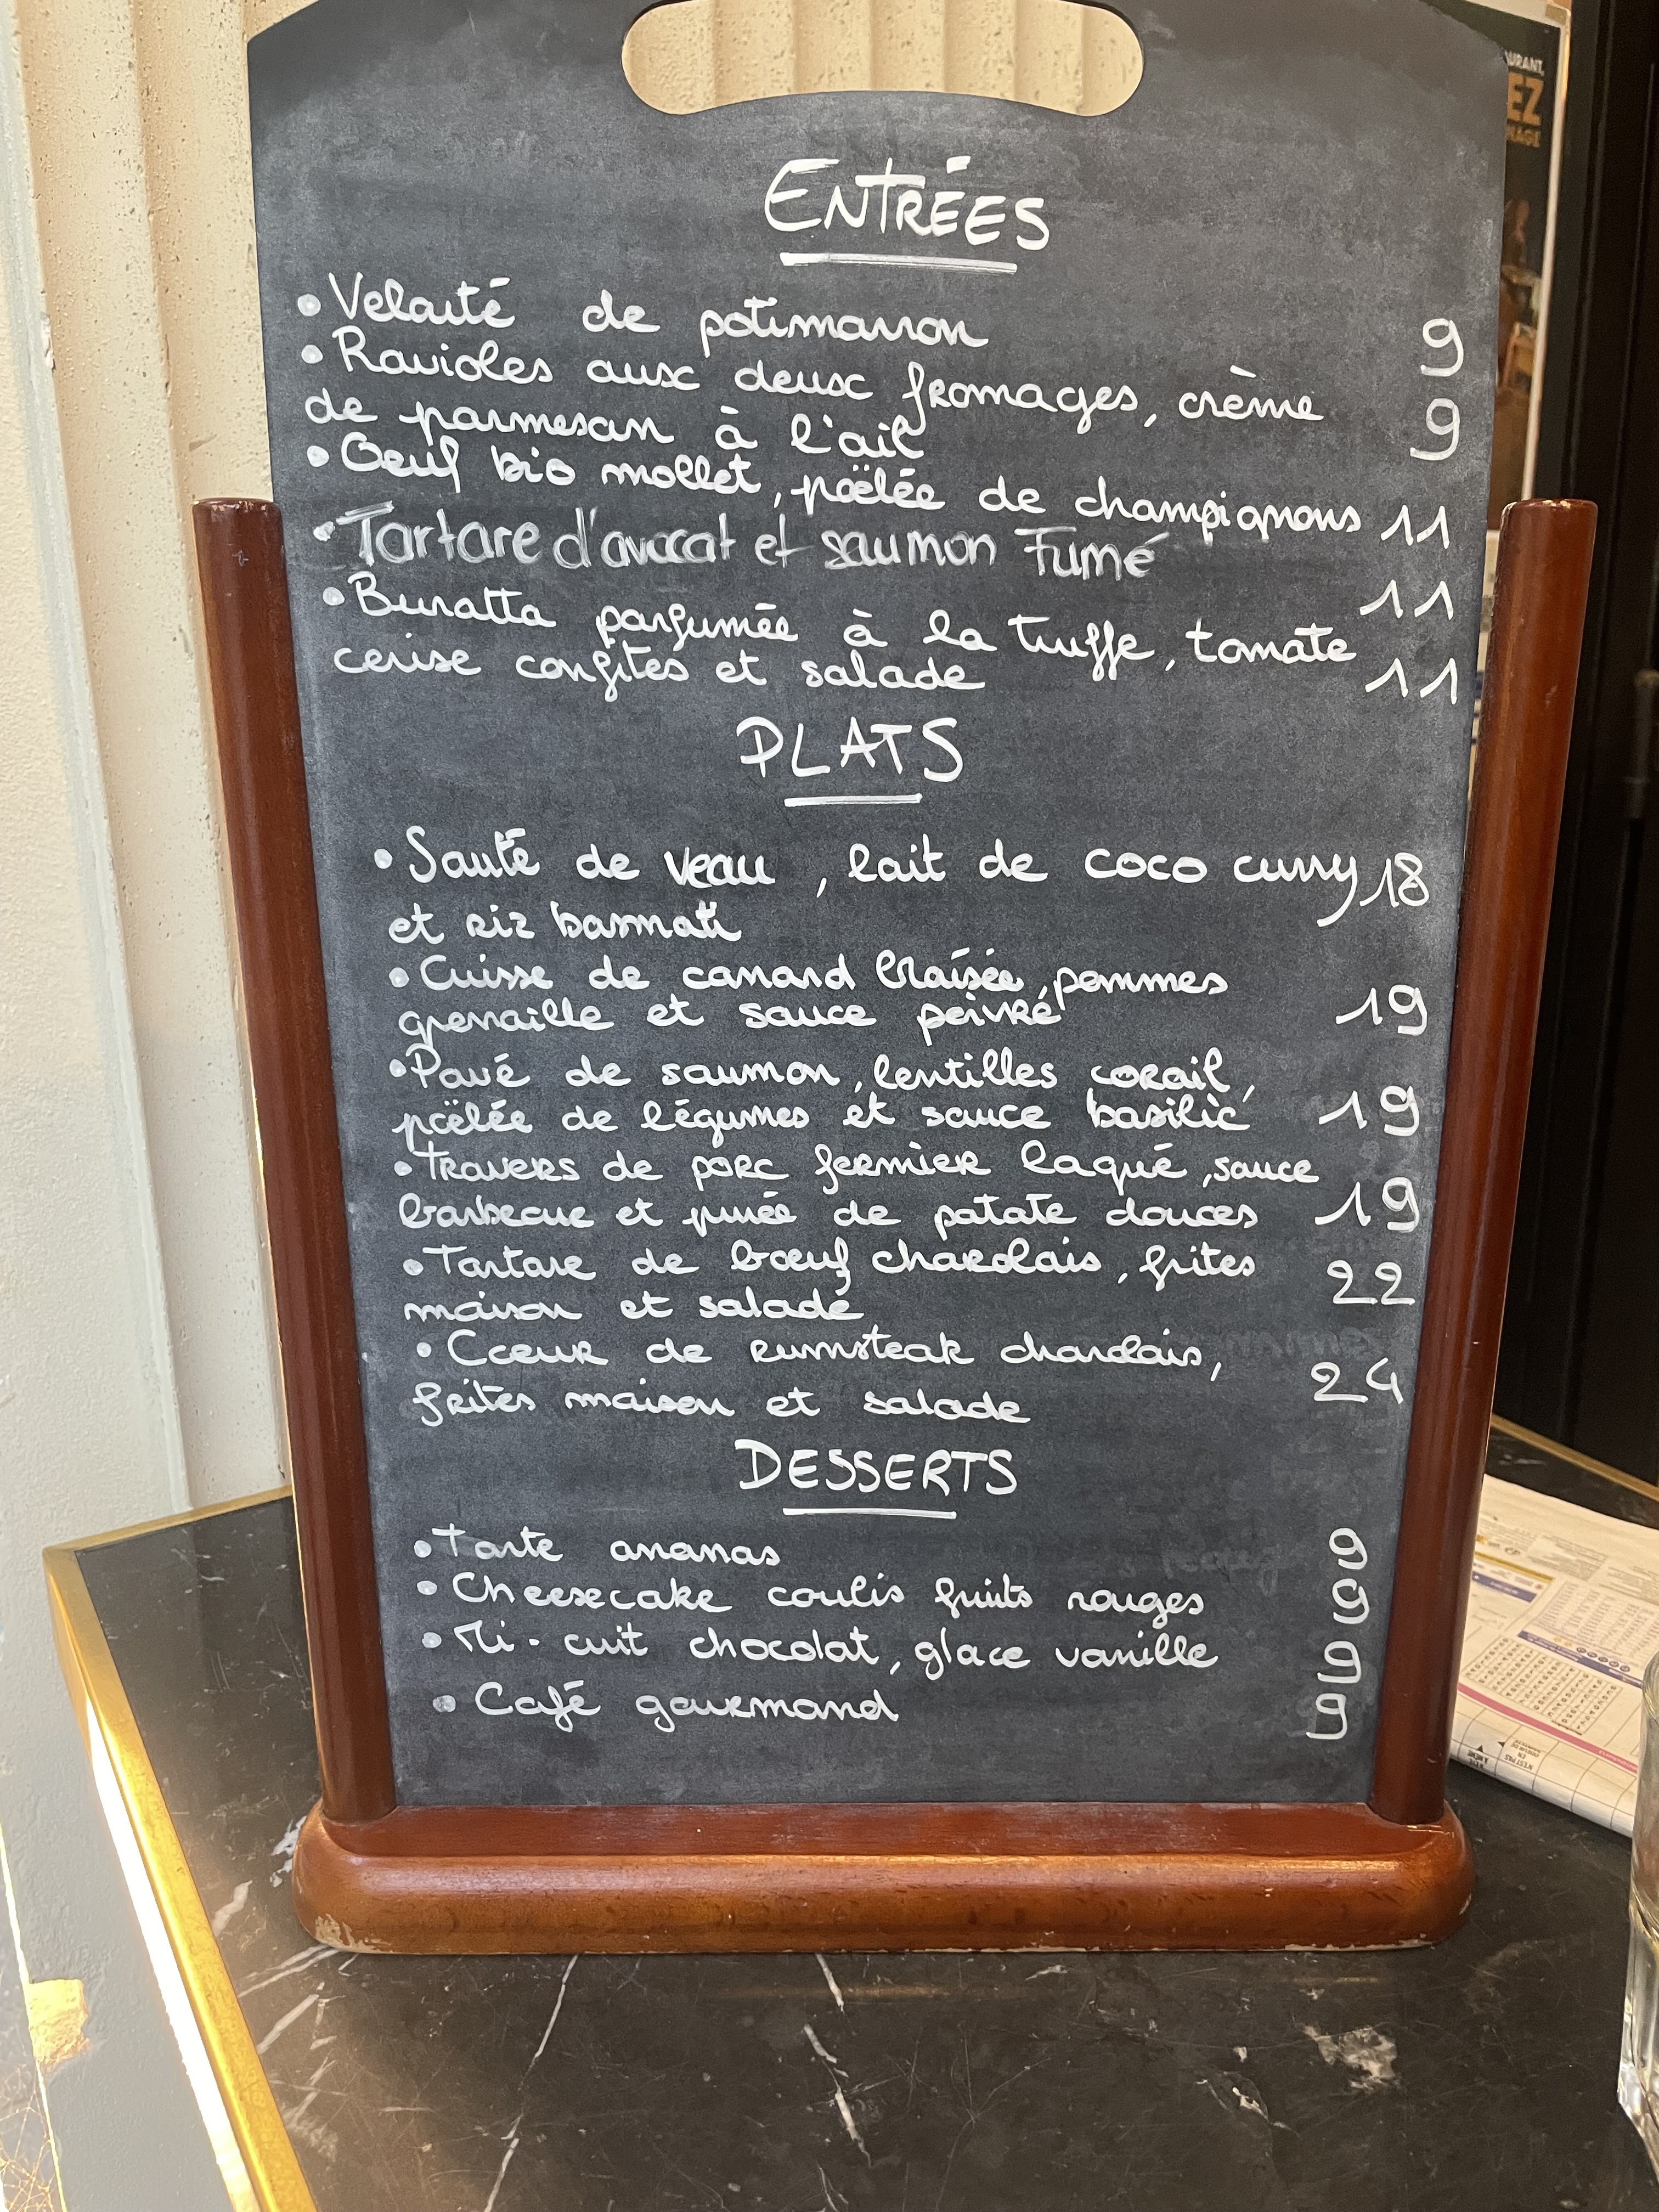 ENTRÉES
• Velouté de potimarron 9
• Ravioles aux deux fromages, crème
de parmesan à l'ail 9
• Oeuf bio mollet, poëlée de champignons 11
• Tartare d'avocat et saumon Fumé 11
• Buratta parfumée à la truffe, tomate
cerise confites et salade 11
PLATS
• Sauté de veau, lait de coco curry 18
et riz basmati
• Cuisse de canard braisée, pommes
grenaille et sauce poivré 19
• Pavé de saumon, lentilles corail,
poëlée de légumes et sauce basilic 19
• Travers de porc fermier laqué, sauce
barbecue et purée de patate douces 19
• Tartare de bœuf charolais, frites 22
maison et salade
• Cœur de rumsteak charolais,
frites maison et salade 24
DESSERTS
• Tarte ananas 9
• Cheesecake coulis fruits rouges 9
• Mi-cuit chocolat, glace vanille 9
• Café gourmand 9
URANT,
EZ
NAGE